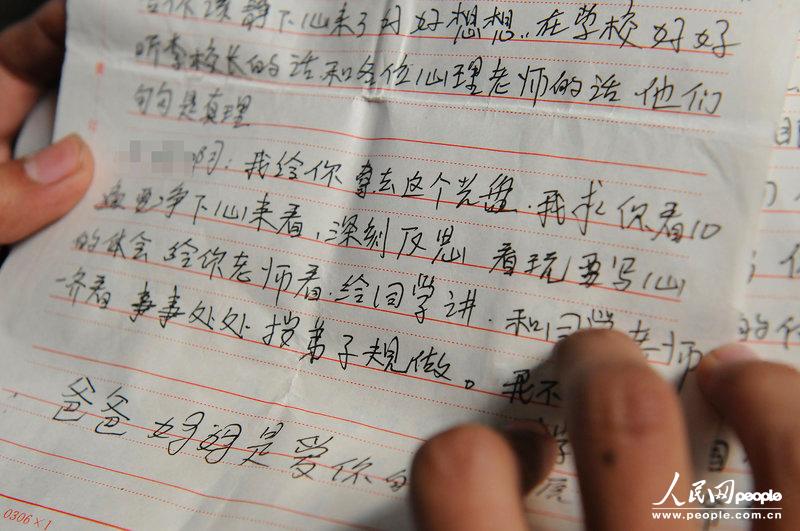 你该静下心来了对好好想想..在学校好好
听李校长的话和各位心理老师的话他们
句句是真理
啊:我给你寄去这个光盘.我求你看10
遍要净下心来看,深刻反思 看玩要写心
的体会给你老师看.给同学讲.和同学老师
一齐看 事事处处按弟子规做。我不
爸爸妈妈是爱你的
0306×1
人民网people
www.people.com.cn